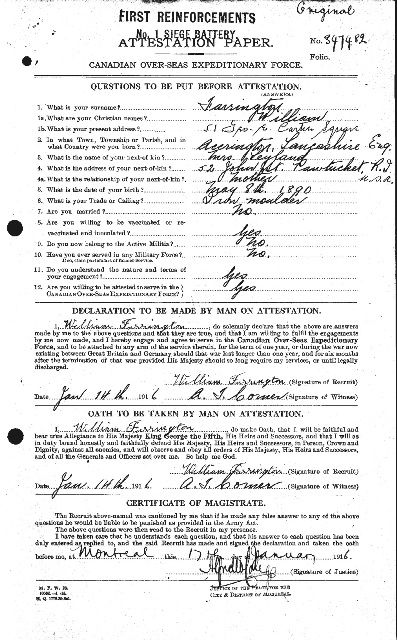 Original
FIRST REINFORCEMENTS
No. 1 SIEGE BATTERY
ATTESTATION PAPER.
No. 347482
Folio.
CANADIAN OVER-SEAS EXPEDITIONARY FORCE.
QUESTIONS TO BE PUT BEFORE ATTESTATION.
(ANSWERS)
1. What is your surname? Farrington
1a. What are your Christian names? William
1b. What is your present address? 51 Carter Square
2. In what Town, Township or Parish, and in
what Country were you born? Accrington, Lancashire Eng
3. What is the name of your next-of-kin? Mrs. Leyland
4. What is the address of your next-of-kin? 52 John St. Pawtucket, R.I.
U.S.A.
4a. What is the relationship of your next-of-kin? mother
5. What is the date of your birth? May 8th, 1890
6. What is your Trade or Calling? Iron moulder
7. Are you married? No.
8. Are you willing to be vaccinated or re-
vaccinated and inoculated? Yes
9. Do you now belong to the Active Militia? No.
10. Have you ever served in any Military Force? No.
If so, state particulars of former Service.
11. Do you understand the nature and terms of
your engagement? Yes
12. Are you willing to be attested to serve in the
CANADIAN OVER-SEAS EXPEDITIONARY FORCE? Yes
DECLARATION TO BE MADE BY MAN ON ATTESTATION.
I, William Farrington, do solemnly declare that the above are answers
made by me to the above questions and that they are true, and that I am willing to fulfil the engagements
by me now made, and I hereby engage and agree to serve in the Canadian Over-Seas Expeditionary
Force, and to be attached to any arm of the service therein, for the term of one year, or during the war now
existing between Great Britain and Germany should that war last longer than one year, and for six months
after the termination of that war provided His Majesty should so long require my services, or until legally
discharged.
William Farrington (Signature of Recruit)
Date Jan 14th 1916 A. S. Comer (Signature of Witness)
OATH TO BE TAKEN BY MAN ON ATTESTATION.
I, William Farrington, do make Oath, that I will be faithful and
bear true Allegiance to His Majesty King George the Fifth, His Heirs and Successors, and that I will as
in duty bound honestly and faithfully defend His Majesty, His Heirs and Successors, in Person, Crown and
Dignity, against all enemies, and will observe and obey all orders of His Majesty, His Heirs and Successors,
and of all the Generals and Officers set over me. So help me God.
William Farrington (Signature of Recruit)
Date Jan 14th 1916 A. S. Comer (Signature of Witness)
CERTIFICATE OF MAGISTRATE.
The Recruit above-named was cautioned by me that if he made any false answer to any of the above
questions he would be liable to be punished as provided in the Army Act.
The above questions were then read to the Recruit in my presence.
I have taken care that he understands each question, and that his answer to each question has been
duly entered as replied to, and the said Recruit has made and signed the declaration and taken the oath
before me, at Montreal this 17th January 1916.
(Signature of Justice)
JUSTICE OF THE PEACE FOR THE
CITY & DISTRICT OF MONTREAL.
M. F. W. 23.